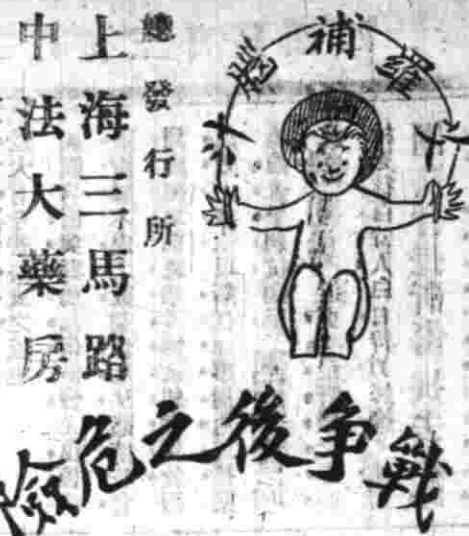 艾羅補腦汁
總發行所
上海三馬路
中法大藥房
戰争後之危險